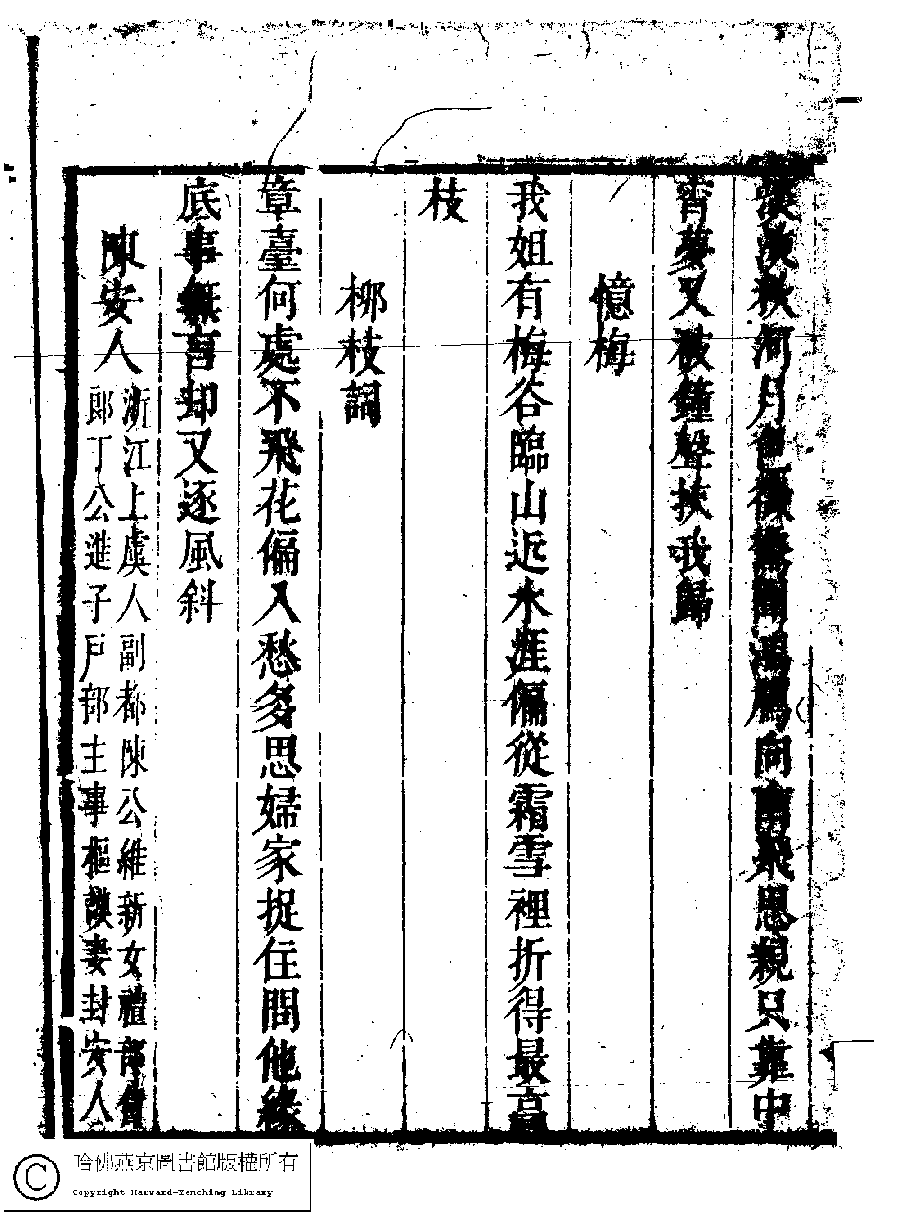 漠漠秋河月色微無聞鴻鴈向南飛思親只靠中
宵夢又被鐘聲挾我歸
憶梅
我姐有梅谷臨山近水涯偏從霜雪裡折得最高
枝
柳枝詞
章臺何處不飛花偏入愁多思婦家捉住問他緣
底事無言却又逐風斜
陳安人
浙江上虞人副都陳公維新女禮部侍
郎丁公進子戶部主事樞謨妻封安人
哈佛燕京圖書館版權所有
Copyright Harvard-Yenching Library